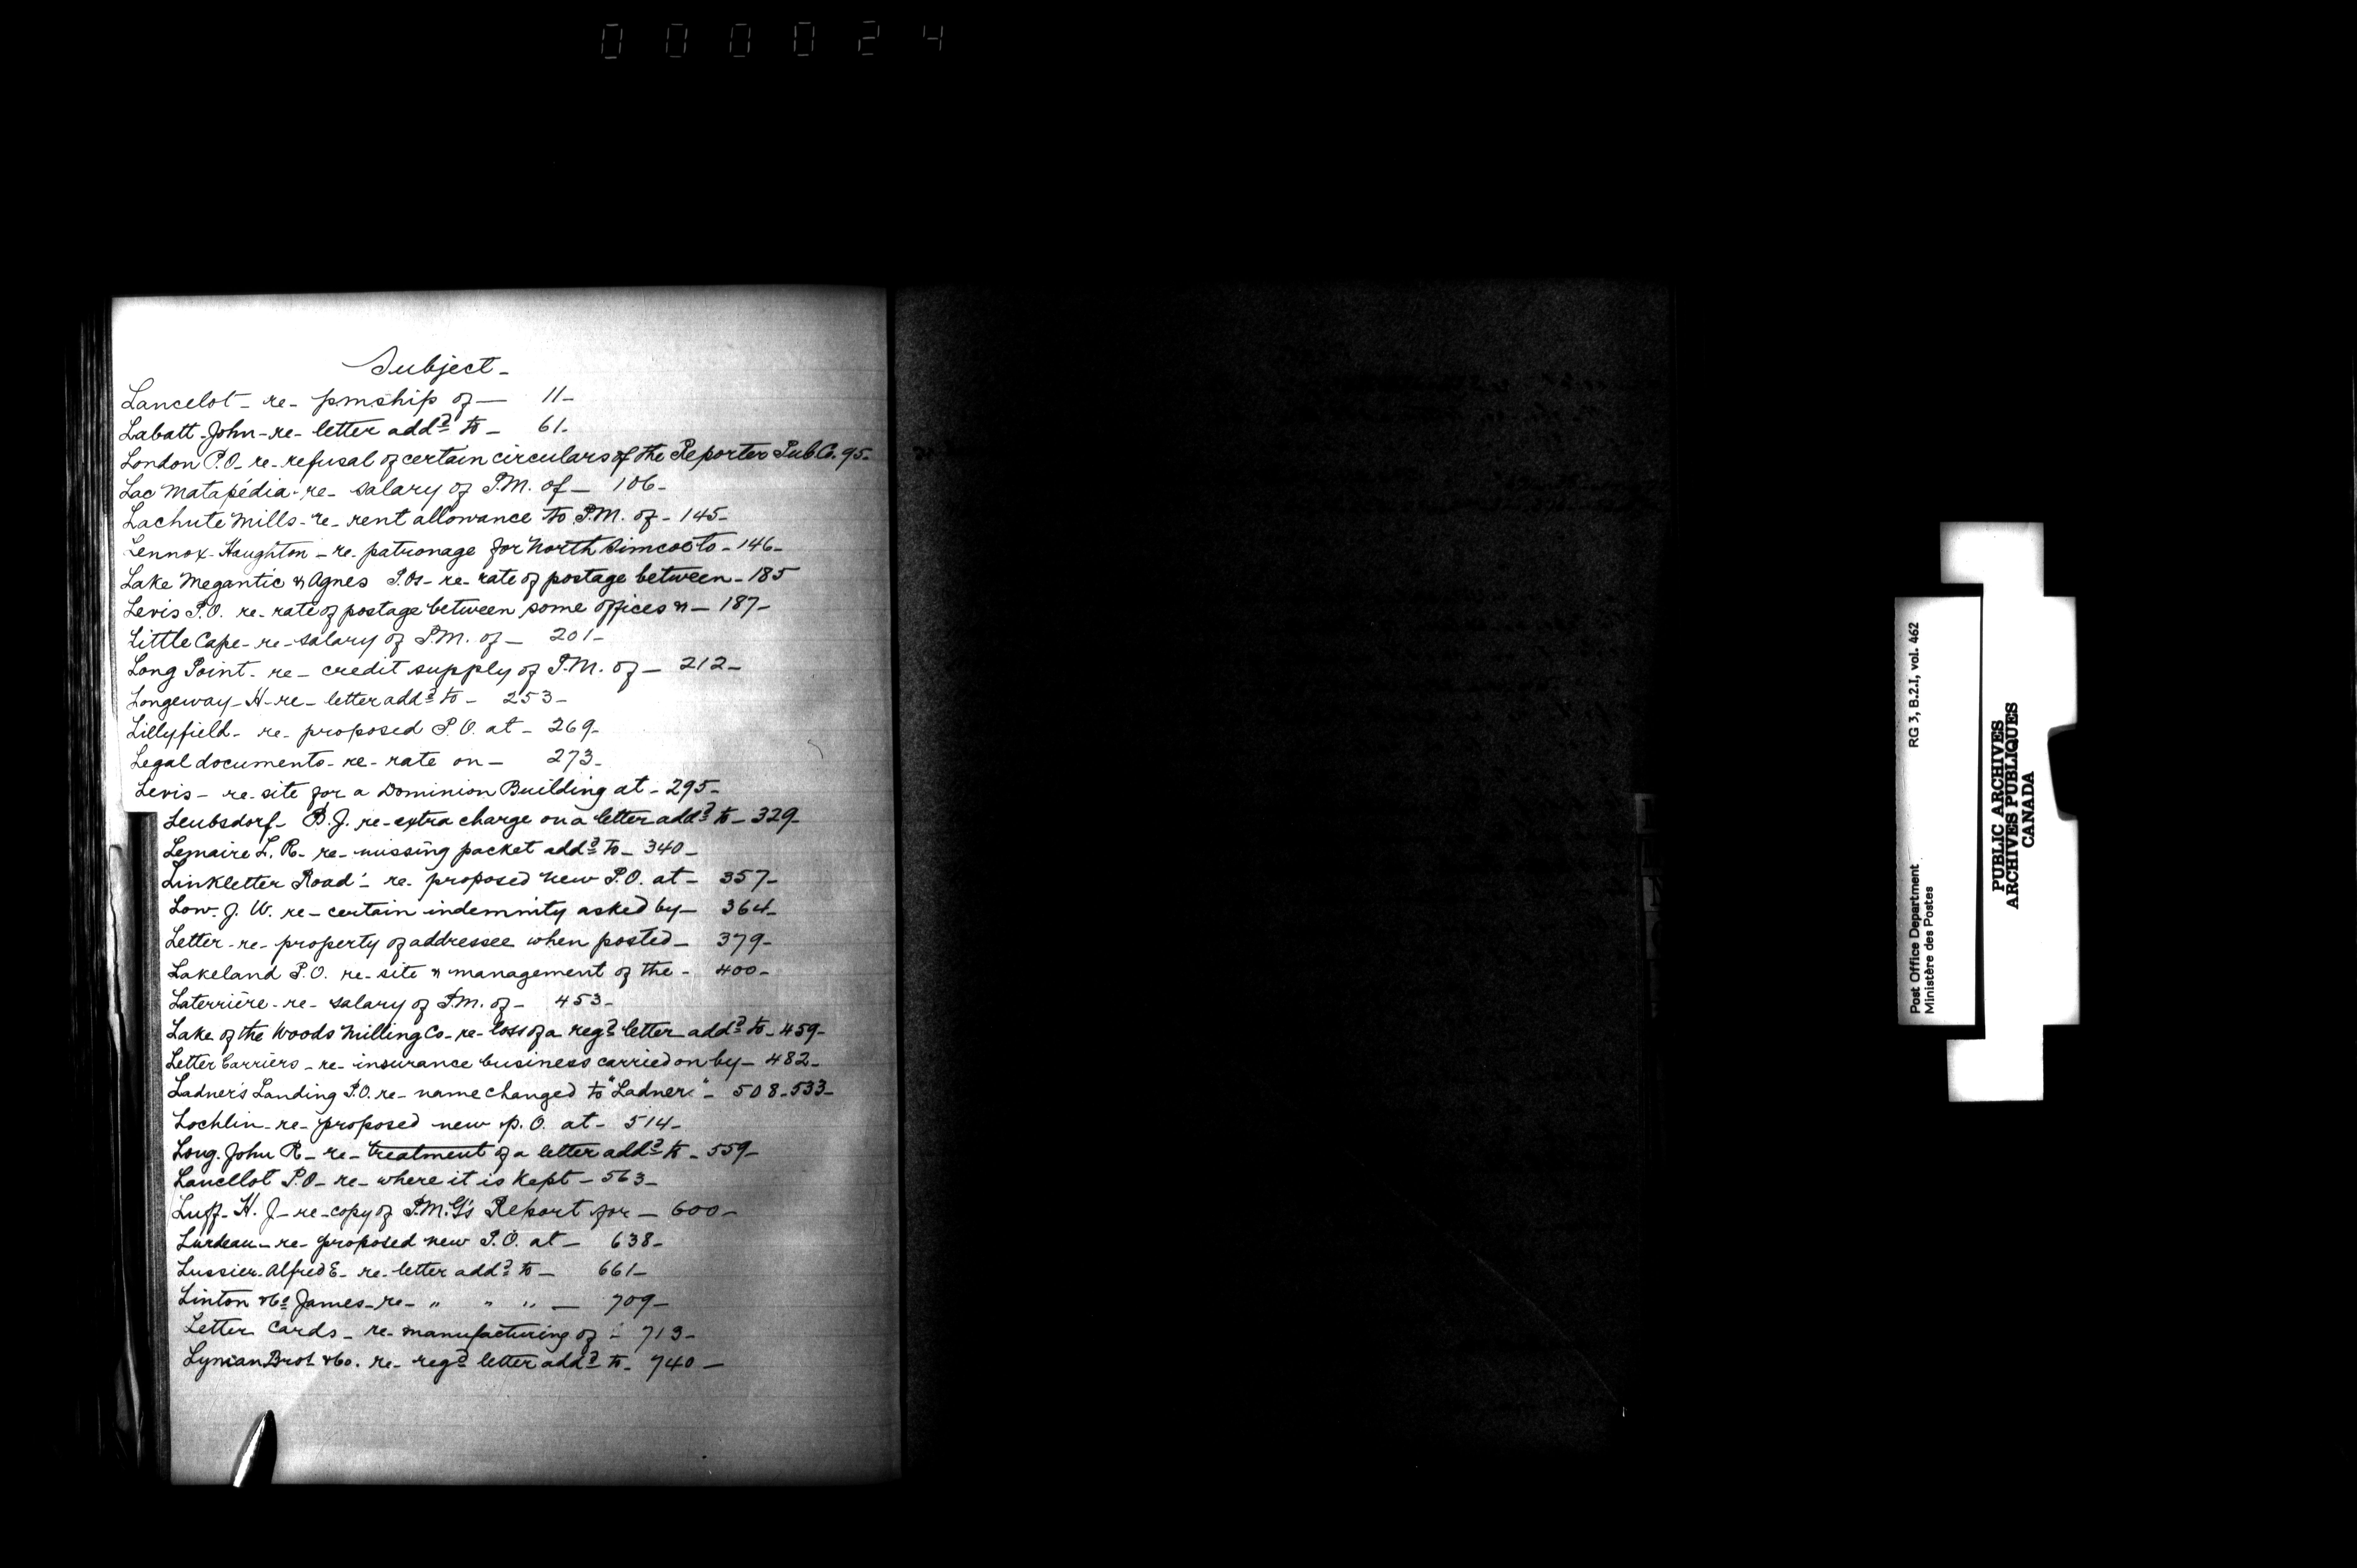 000024
Subject-
Lancelot- re- pmship of- 11-
Labatt-John-re- letter add? to- 61-
London P.O- re- refusal of certain circulars of the Reporter Pub.Co. 95-
Lac Matapédia- re- salary of P.M. of- 106-
Lachute Mills- re- rent allowance to P.M. of- 145-
Lennox-Haughton- re- patronage for North Simcoe to- 146-
Lake Megantic & Agnes P.Os- re- rate of postage between- 185
Levis P.O. re- rate of postage between some offices &- 187-
Little Cape- re- salary of P.M. of- 201-
Long Point- re- credit supply of P.M. of- 212-
Longeway- H- re- letter add? to- 253-
Lillyfield- re- proposed P.O. at- 269-
Legal documents- re- rate on- 273-
Levis- re- site for a Dominion Building at- 295-
Leubsdorf- B.J. re- extra charge on a letter add? to- 329-
Lemaire L. R- re- missing packet add? to- 340-
Linkletter Road'- re- proposed new P.O. at- 357-
Low- J. W. re- certain indemnity asked by- 364-
Letter- re- property of addressee when posted- 379-
Lakeland P.O. re- site & management of the- 400-
Laterrière- re- salary of P.M. of- 453-
Lake of the Woods Milling Co- re- loss of a reg? letter add? to- 459-
Letter Carriers- re- insurance business carried on by- 482-
Ladner's Landing P.O. re- name changed to "Ladner"- 508-533-
Lochlin- re- proposed new p.O. at- 514-
Long. John R- re- treatment of a letter add? to- 559-
Lancelot P.O- re- where it is kept- 563-
Luff- H. J- re- copy of P.M.G's Report for- 600-
Lurdeau- re- proposed new P.O. at- 638-
Lussier- Alfred E- re- letter add? to- 661-
Linton &Co James- re- " " " - 709-
Letter Cards- re- manufacturing of- 713-
Lyman Bros &Co. re- reg? letter add? to- 740-
RG 3, B.2.I, vol. 462
Post Office Department
Ministère des Postes
PUBLIC ARCHIVES
ARCHIVES PUBLIQUES
CANADA